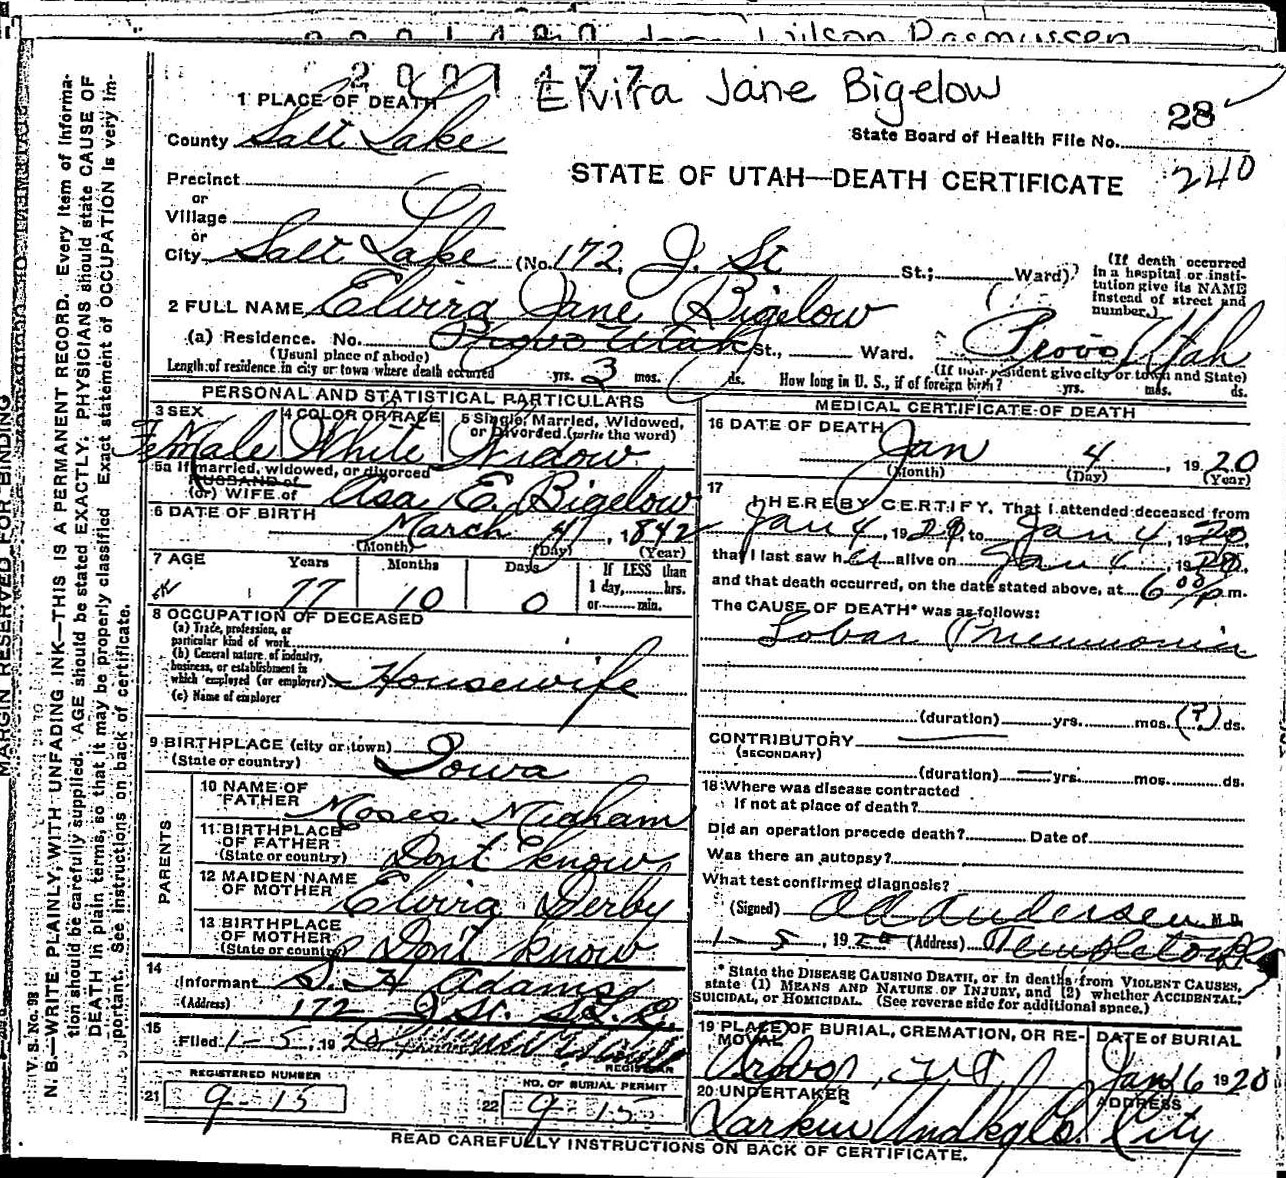 2001477
Elvira Jane Bigelow
1 PLACE OF DEATH
County Salt Lake
28
State Board of Health File No.
240
STATE OF UTAH—DEATH CERTIFICATE
Precinct
or
Village
or
City Salt Lake (No. 172, J. St St.; Ward)
(If death occurred in a hospital or institution give its NAME instead of street and number.)
2 FULL NAME Elvira Jane Bigelow
(a) Residence. No. Provo Utah St., Ward. Provo, Utah
(Usual place of abode)
(If non-resident give city or town and State)
Length of residence in city or town where death occurred yrs. 3 mos. ds. How long in U. S., if of foreign birth? yrs. mos. ds.
PERSONAL AND STATISTICAL PARTICULARS
3 SEX Female
4 COLOR OR RACE White
5 Single, Married, Widowed, or Divorced (write the word) Widow
5a If married, widowed, or divorced
HUSBAND of
(or) WIFE of Asa E. Bigelow
6 DATE OF BIRTH March 4, 1842
(Month) (Day) (Year)
7 AGE Years Months Days If LESS than
77 10 0 1 day, hrs.
or min.
8 OCCUPATION OF DECEASED
(a) Trade, profession, or
particular kind of work
(b) General nature of industry,
business, or establishment in
which employed (or employer) Housewife
(c) Name of employer
9 BIRTHPLACE (city or town)
(State or country) Iowa
PARENTS
10 NAME OF
FATHER Moses
11 BIRTHPLACE
OF FATHER
(State or country) Dont know
12 MAIDEN NAME
OF MOTHER Elvira Derby
13 BIRTHPLACE
OF MOTHER
(State or country) Dont know
14
Informant S. H. Adams
(Address) 172 J St. S.L.C.
15
Filed 1-5, 1920
REGISTRAR
REGISTERED NUMBER
21 9-15
NO. OF BURIAL PERMIT
22 9 15
MEDICAL CERTIFICATE OF DEATH
16 DATE OF DEATH
Jan 4, 1920
(Month) (Day) (Year)
17
I HEREBY CERTIFY, That I attended deceased from
Jan 4, 1920, to Jan 4, 1920,
that I last saw her alive on Jan 4, 1920,
and that death occurred, on the date stated above, at 6 00 p m.
The CAUSE OF DEATH* was as follows:
Lobar Pneumonia
(duration) yrs. mos. (?) ds.
CONTRIBUTORY
(SECONDARY)
(duration) yrs. mos. ds.
18 Where was disease contracted
If not at place of death?
Did an operation precede death? Date of
Was there an autopsy?
What test confirmed diagnosis?
(Signed) Andersen M.D.
1-5, 1920 (Address) Templeton
* State the DISEASE CAUSING DEATH, or in deaths from VIOLENT CAUSES,
state (1) MEANS AND NATURE OF INJURY, and (2) whether ACCIDENTAL,
SUICIDAL, or HOMICIDAL. (See reverse side for additional space.)
19 PLACE OF BURIAL, CREMATION, OR REMOVAL
Provo, Ut
DATE of BURIAL
Jan 6 1920
20 UNDERTAKER
Larkin Undkg Co.
ADDRESS
City
READ CAREFULLY INSTRUCTIONS ON BACK OF CERTIFICATE.
MARGIN RESERVED FOR BINDING
V. S. No. 98
N. B.—WRITE PLAINLY, WITH UNFADING INK—THIS IS A PERMANENT RECORD. Every item of information should be carefully supplied. AGE should be stated EXACTLY. PHYSICIANS should state CAUSE OF DEATH in plain terms, so that it may be properly classified. Exact statement of OCCUPATION is very important. See instructions on back of certificate.